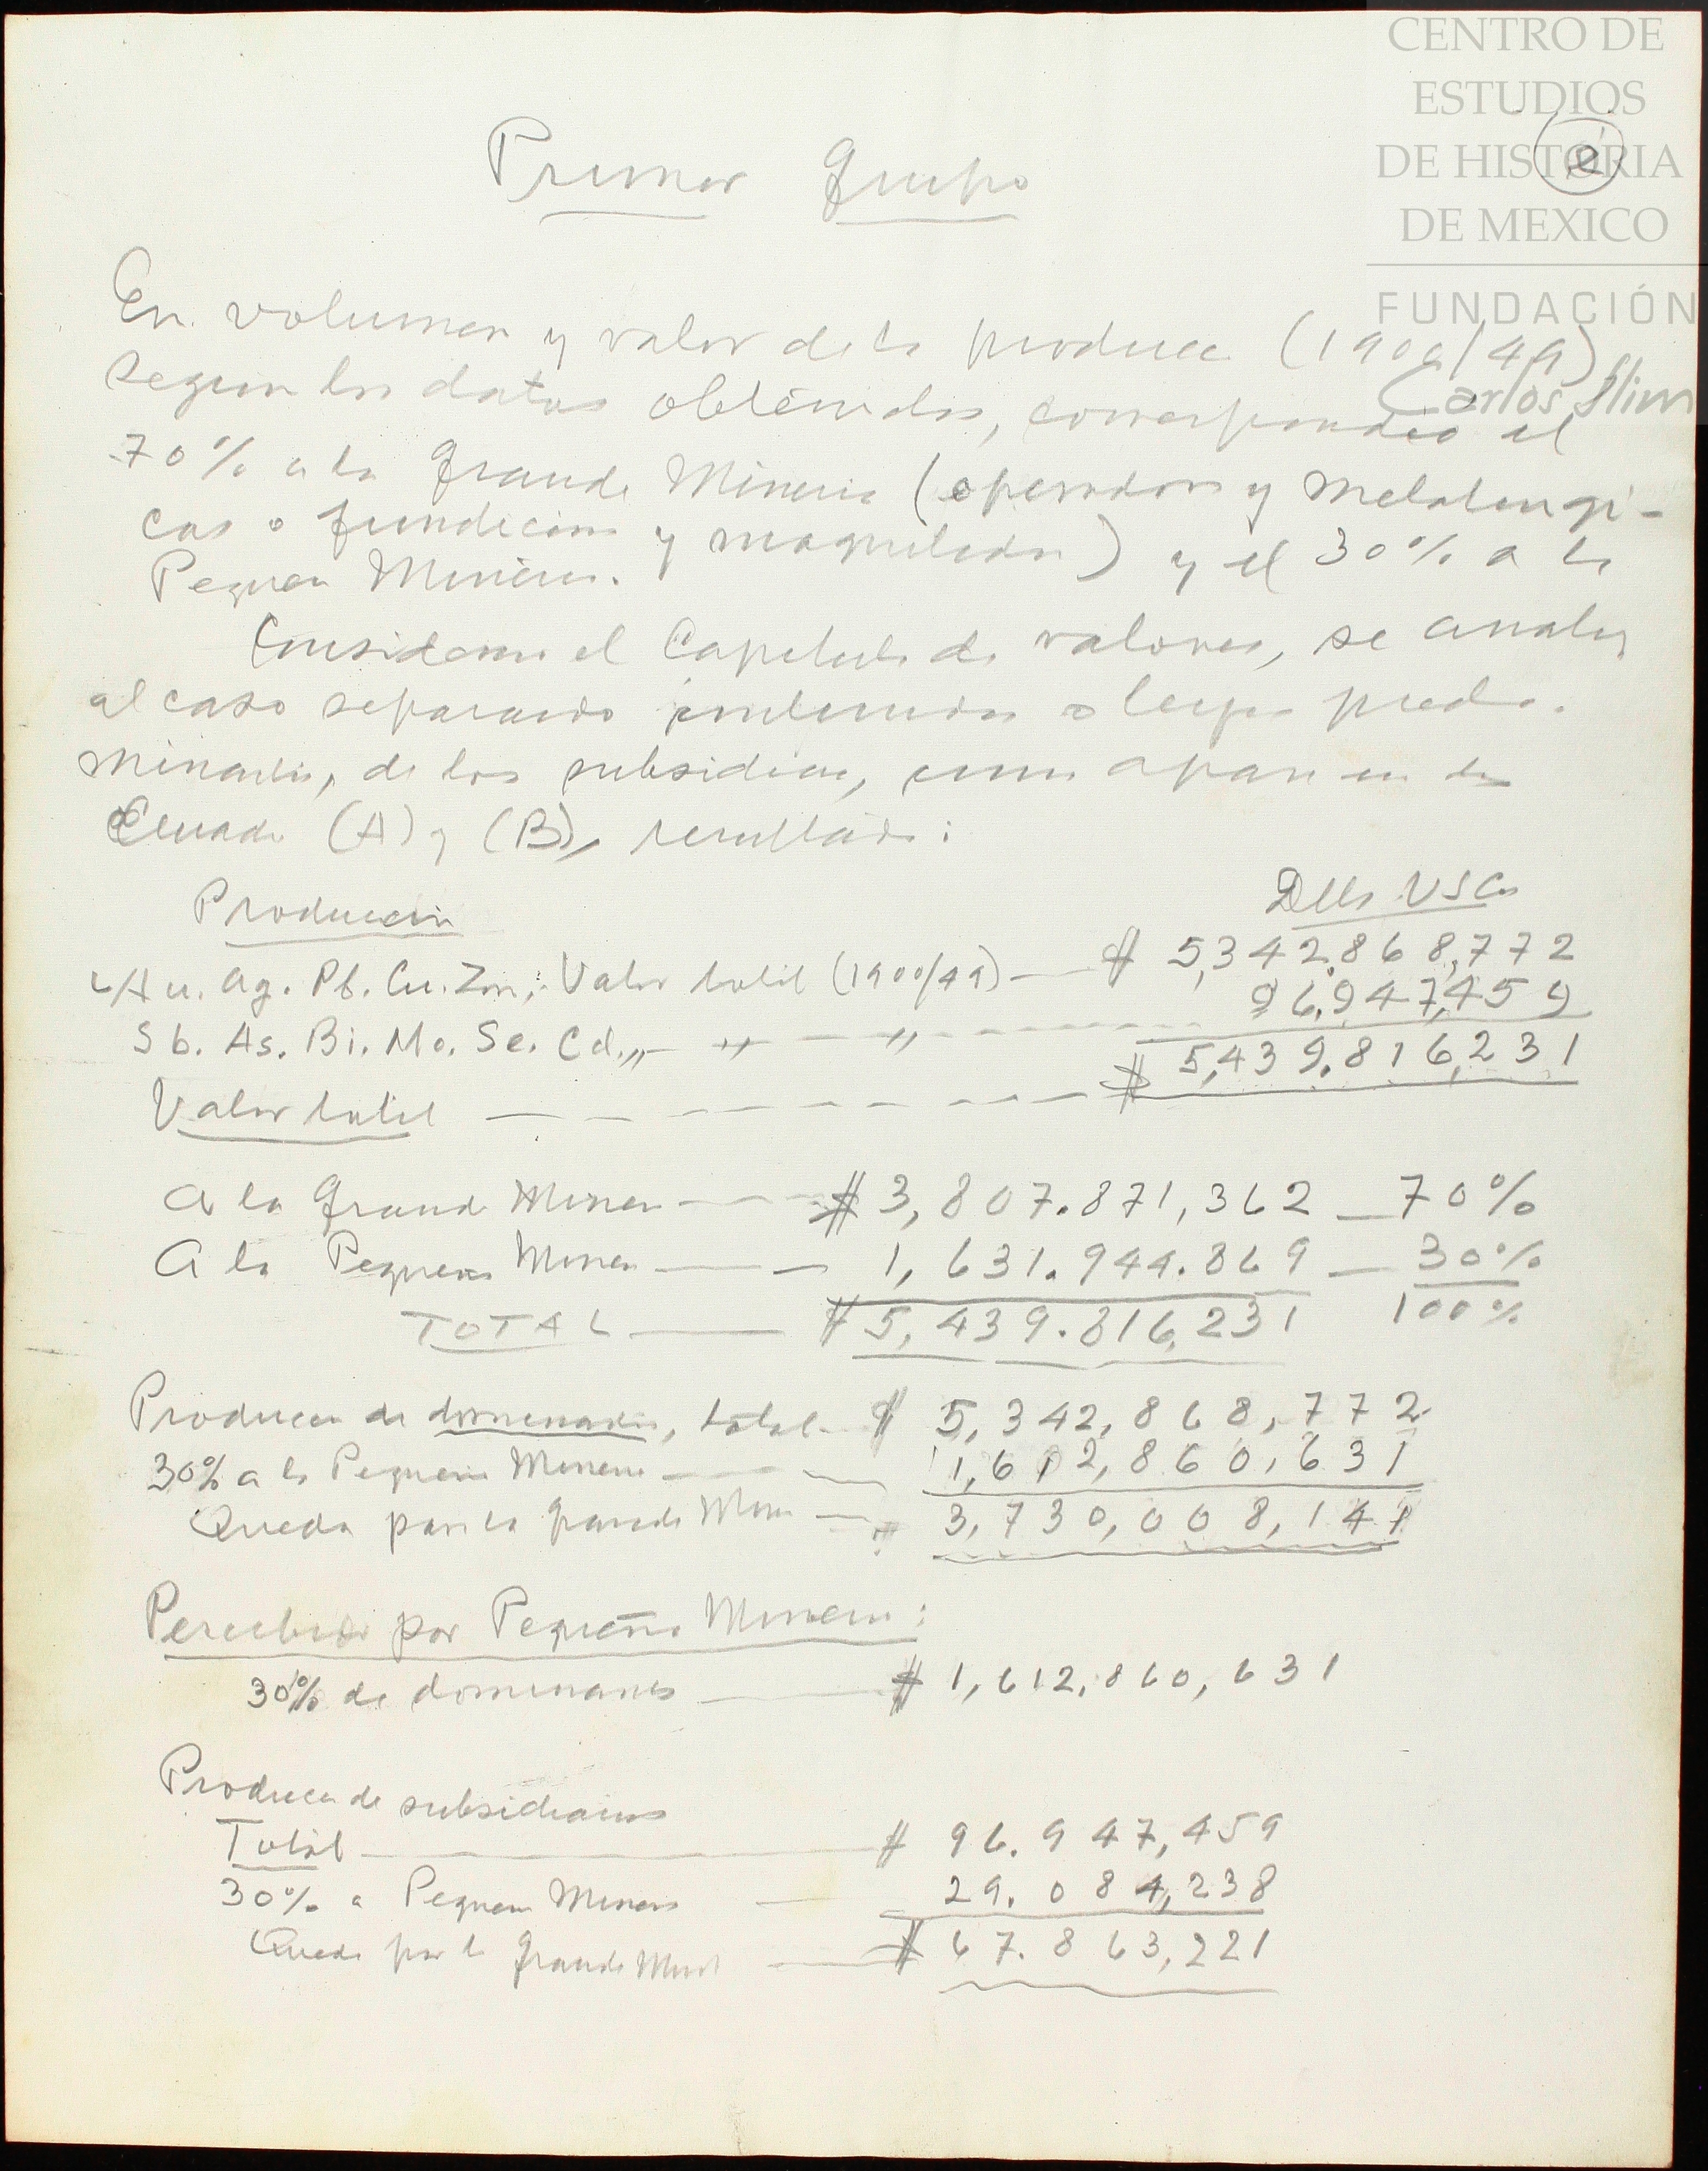 CENTRO DE
ESTUDIOS
DE HISTORIA
DE MEXICO
FUNDACIÓN
Carlos Slim
Primer Grupo
En volumen y valor de la producc (1900/49)
segun los datos obtenidos, correspondio el
70% a la Grande Mineria (operadoras y Metalurgi-
cas o fundicion y maquilador) y el 30% a la
Pequeña Mineria.
el Capitulo de valores, se analiz
al caso separando o leyes predo-
minantes, de los subsidiar, como aparecen en los
Cuadro (A) y (B), resultado:
Produccion
Dlls USCy
Au. Ag. Pb. Cu. Zn; Valor total (1900/49) — $ 5,342.868,772
Sb. As. Bi. Mo. Se. Cd. „ — „ — „ — 96.947,459
Valor total — $ 5,439.816,231
A la Grande Miner — $ 3,807.871,362 — 70%
A la Pequeña Miner — 1,631.944.869 — 30%
TOTAL — $ 5,439.816,231 100%
Produccn de dominantes, total — $ 5,342,868,772
30% a la Pequeña Mineria — 1,612,860,631
Queda para la Grande Min — $ 3,730,008,141
Percibido por Pequeña Mineria:
30% de dominantes — $ 1,612,860,631
Produccn de subsidiarios
Total — $ 96.947,459
30% a Pequeña Miner — 29.084,238
Queda par la Grande Min — $ 67.863,221